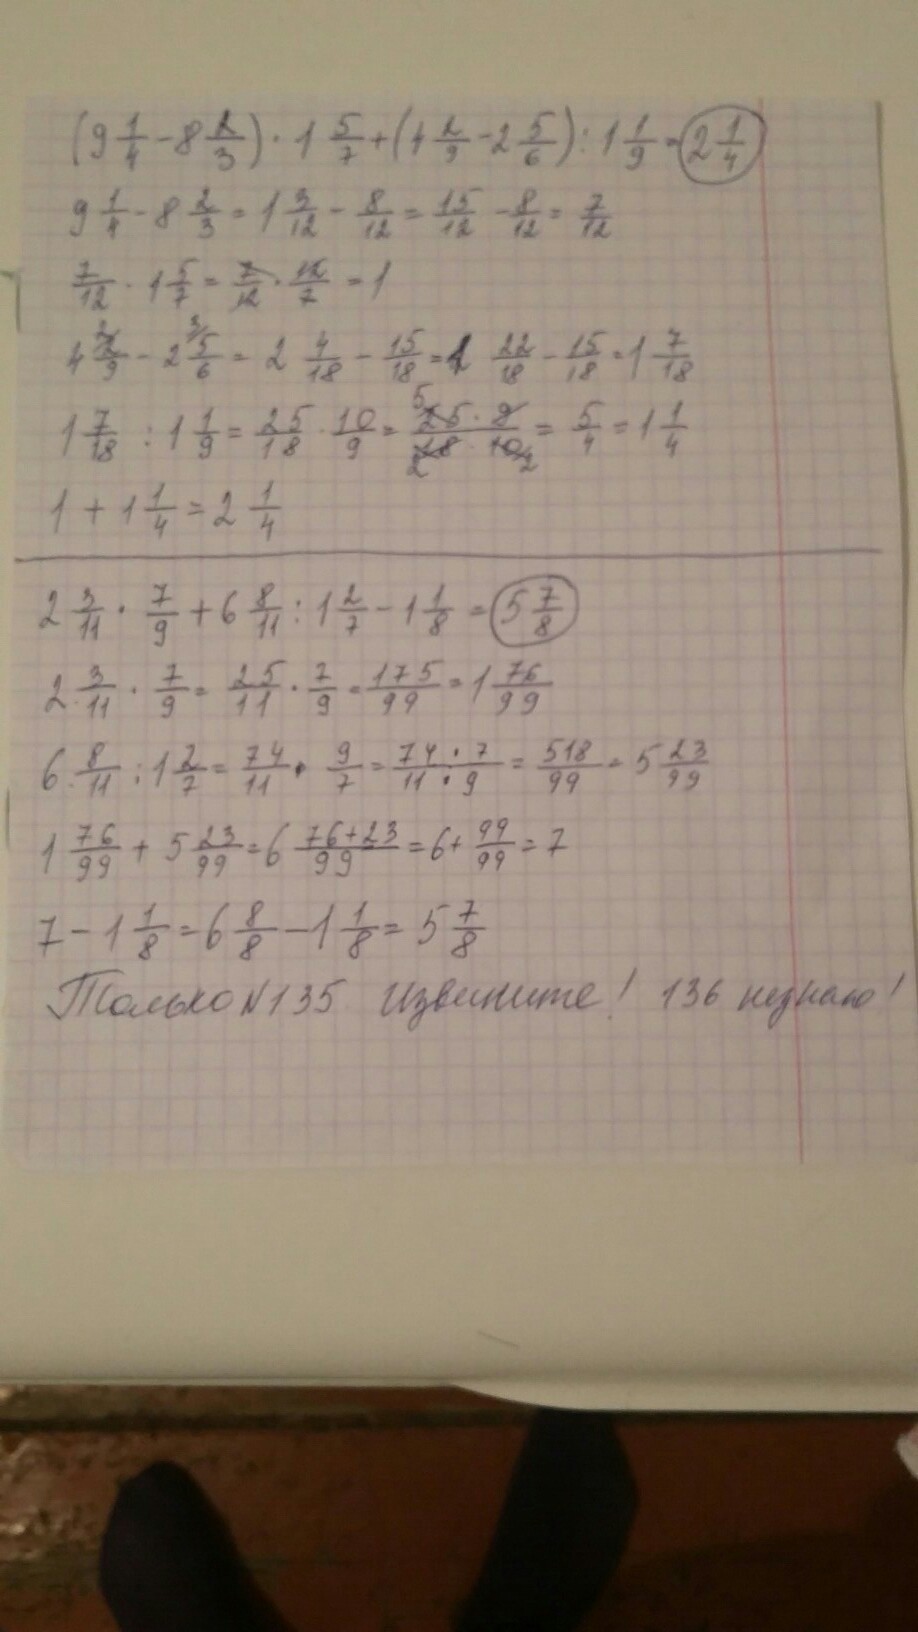 (9 1/4 - 8 2/3) · 1 5/7 + (4 2/9 - 2 5/6) : 1 1/9 = 2 1/4
9 1/4 - 8 2/3 = 1 3/12 - 8/12 = 15/12 - 8/12 = 7/12
7/12 · 1 5/7 = 7/12 · 12/7 = 1
4 2/9 - 2 5/6 = 2 4/18 - 15/18 = 1 22/18 - 15/18 = 1 7/18
1 7/18 : 1 1/9 = 25/18 · 10/9 = 25 · 9 / 18 · 10 = 5/4 = 1 1/4
1 + 1 1/4 = 2 1/4
2 3/11 · 7/9 + 6 8/11 : 1 2/7 - 1 1/8 = 5 7/8
2 3/11 · 7/9 = 25/11 · 7/9 = 175/99 = 1 76/99
6 8/11 : 1 2/7 = 74/11 · 9/7 = 74 · 7 / 11 · 9 = 518/99 = 5 23/99
1 76/99 + 5 23/99 = 6 76+23/99 = 6 + 99/99 = 7
7 - 1 1/8 = 6 8/8 - 1 1/8 = 5 7/8
Только №135. Извените! 136 незнаю!